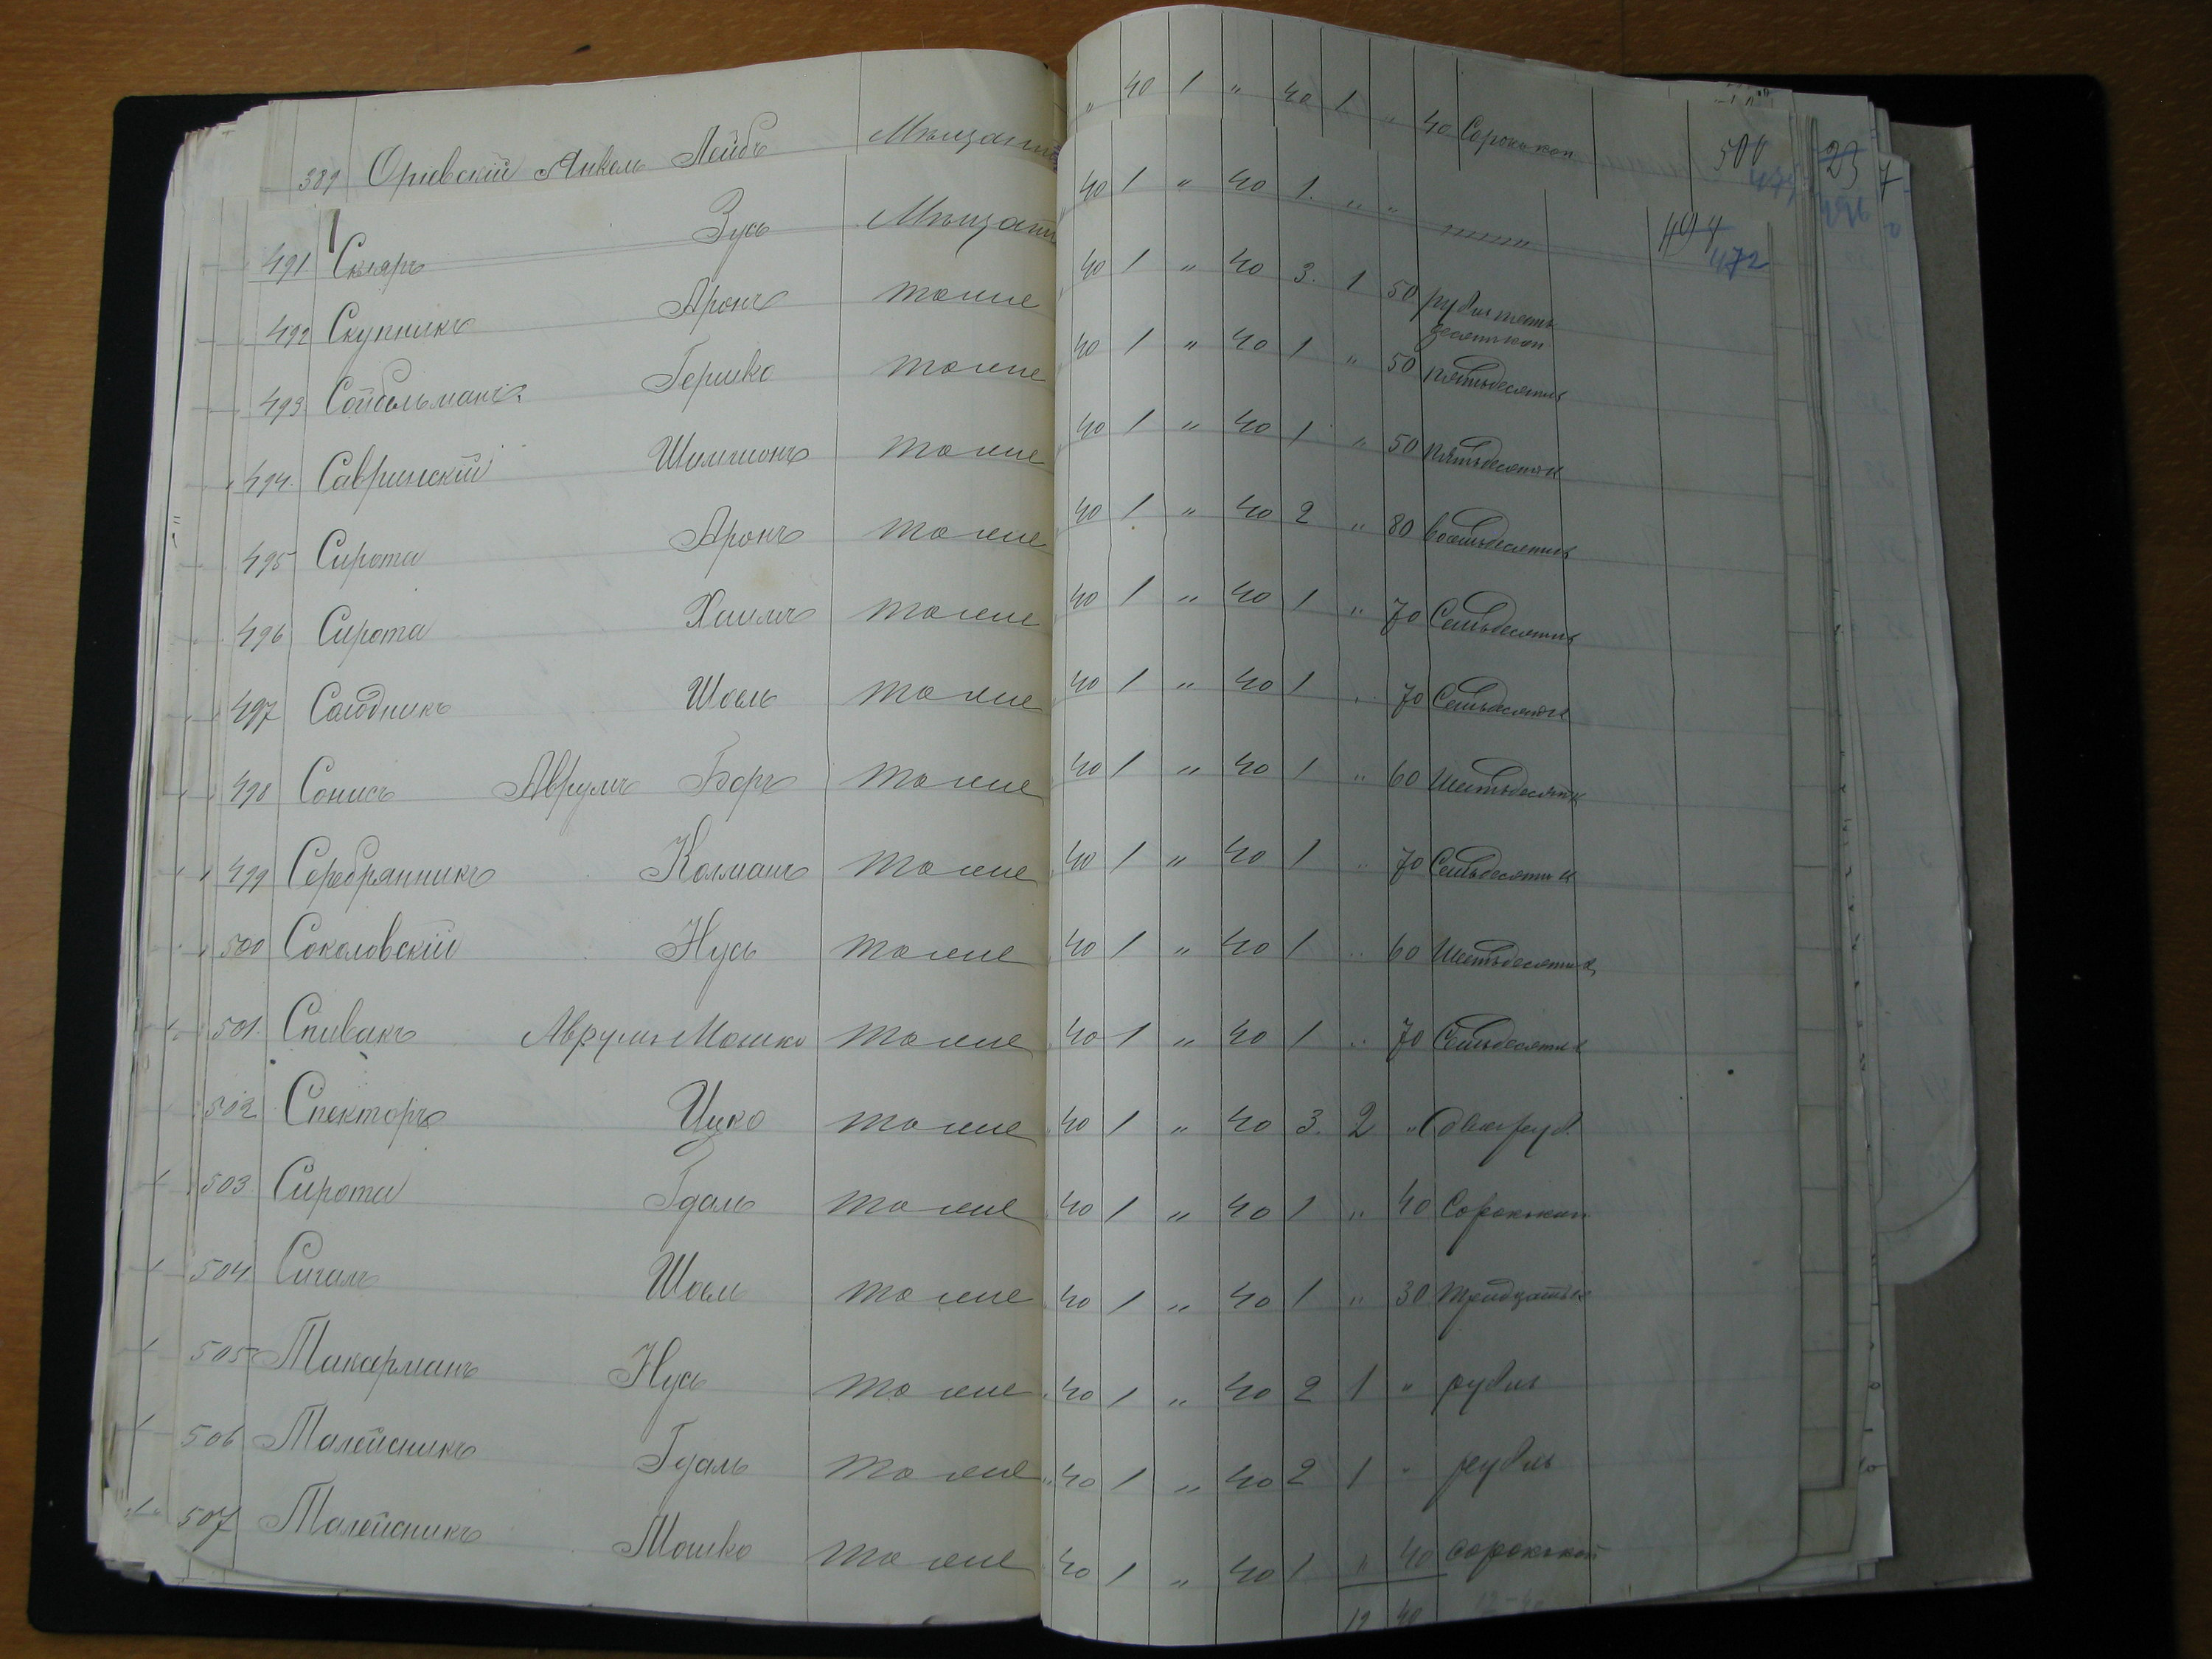 389 Оривскій Янкель Лейбъ Мѣщан „ 40 1 „ 40 1 „ 40 Сорокъ коп 500
491 Скляръ Зусь Мѣщан 40 1 „ 40 1. „ „ 494 472
492 Скупникъ Аронъ тоже 40 1 „ 40 3. 1 50 рубль пять
десят коп
493 Сойбельманъ Гершко тоже 40 1 „ 40 1 „ 50 пятьдесятк
494. Савринскій Шимшонъ тоже 40 1 „ 40 1 „ 50 пятьдесят к
495 Сирота Аронъ тоже 40 1 „ 40 2 „ 80 восемьдесятк
496 Сирота Хаимъ тоже 40 1 „ 40 1 „ 70 Семьдесятк
497 Шоель тоже 40 1 „ 40 1 „ 70 Семьдесятк
498 Сонисъ Аврумъ Беръ тоже 40 1 „ 40 1 „ 60 Шестьдесятк
499 Серебрянникъ Колманъ тоже 40 1 „ 40 1 „ 70 Семьдесят к
500 Соколовскій Нусь тоже 40 1 „ 40 1 „ 60 Шестьдесят к
501. Спивакъ Аврумъ Мошко тоже 40 1 „ 40 1 „ 70 Семьдесятк
502 Спекторъ Ицко тоже 40 1 „ 40 3. 2 „ два руб.
503 Сирота Гдаль тоже 40 1 „ 40 1 „ 40 Сорокъ коп
504 Сигалъ Шоел тоже 40 1 „ 40 1 „ 30 тридцать к
505 Такерманъ Нусь тоже 40 1 „ 40 2 1 „ рубль
506 Талейсникъ Гдаль тоже 40 1 „ 40 2 1 „ рубль
507 Талейсникъ Мошко тоже 40 1 „ 40 1 „ 40 сорокъ коп
12 40